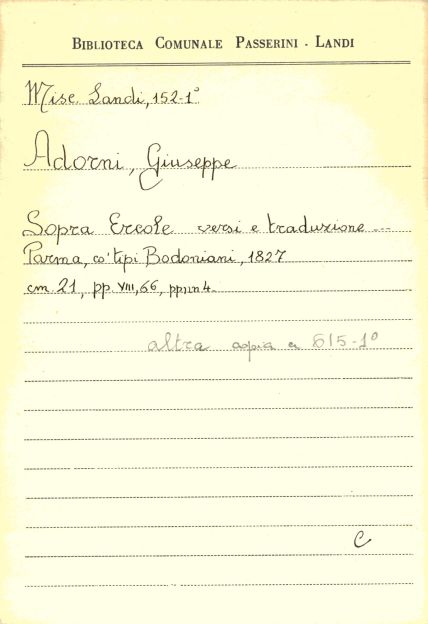 BIBLIOTECA COMUNALE PASSERINI - LANDI
Misc. Landi, 152-1°
Adorni, Giuseppe
Sopra Ercole versi e traduzione ...
Parma, co' tipi Bodoniani, 1827
cm. 21, pp. VIII, 66, pp nn 4.
altra copia a 615-1°
C